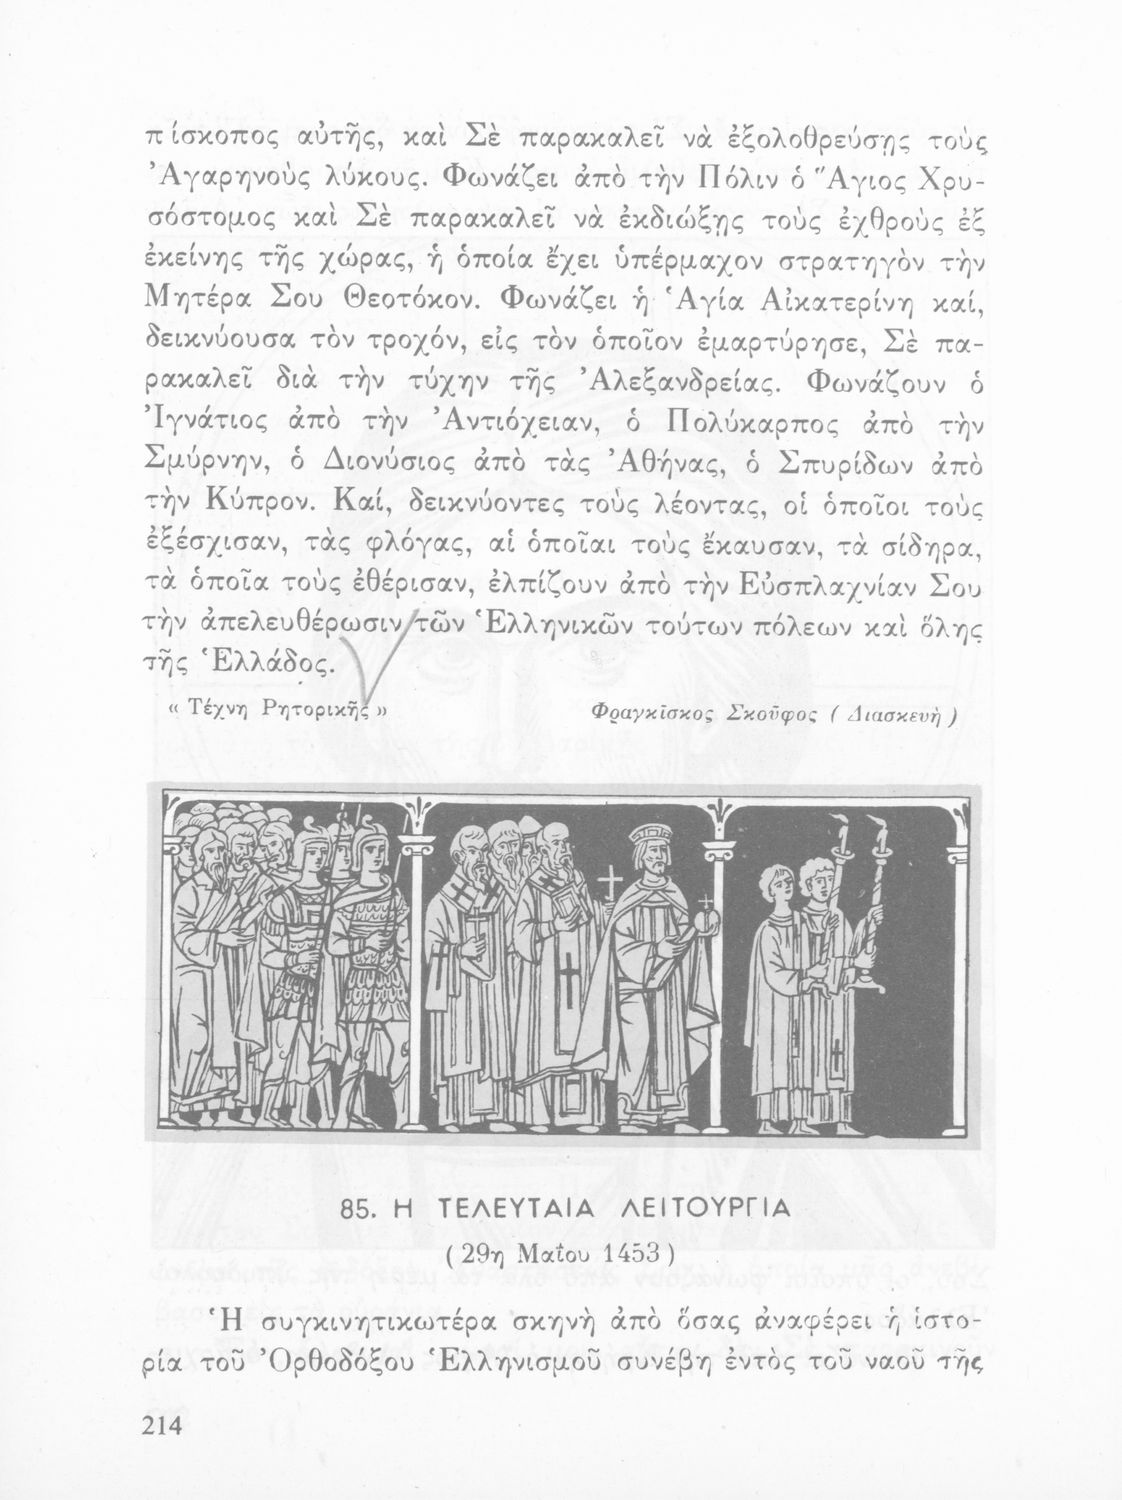 πίσκοπος αὐτῆς, καὶ Σὲ παρακαλεῖ νὰ ἐξολοθρεύσῃς τοὺς
Ἀγαρηνοὺς λύκους. Φωνάζει ἀπὸ τὴν Πόλιν ὁ Ἅγιος Χρυ-
σόστομος καὶ Σὲ παρακαλεῖ νὰ ἐκδιώξῃς τοὺς ἐχθροὺς ἐξ
ἐκείνης τῆς χώρας, ἡ ὁποία ἔχει ὑπέρμαχον στρατηγὸν τὴν
Μητέρα Σου Θεοτόκον. Φωνάζει ἡ Ἁγία Αἰκατερίνη καί,
δεικνύουσα τὸν τροχόν, εἰς τὸν ὁποῖον ἐμαρτύρησε, Σὲ πα-
ρακαλεῖ διὰ τὴν τύχην τῆς Ἀλεξανδρείας. Φωνάζουν ὁ
Ἰγνάτιος ἀπὸ τὴν Ἀντιόχειαν, ὁ Πολύκαρπος ἀπὸ τὴν
Σμύρνην, ὁ Διονύσιος ἀπὸ τὰς Ἀθήνας, ὁ Σπυρίδων ἀπὸ
τὴν Κύπρον. Καί, δεικνύοντες τοὺς λέοντας, οἱ ὁποῖοι τοὺς
ἐξέσχισαν, τὰς φλόγας, αἱ ὁποῖαι τοὺς ἔκαυσαν, τὰ σίδηρα,
τὰ ὁποῖα τοὺς ἐθέρισαν, ἐλπίζουν ἀπὸ τὴν Εὐσπλαχνίαν Σου
τὴν ἀπελευθέρωσιν τῶν Ἑλληνικῶν τούτων πόλεων καὶ ὅλης
τῆς Ἑλλάδος.
« Τέχνη Ρητορικῆς » Φραγκῖσκος Σκοῦφος ( Διασκευὴ )
85. Η ΤΕΛΕΥΤΑΙΑ ΛΕΙΤΟΥΡΓΙΑ
( 29η Μαΐου 1453 )
Ἡ συγκινητικωτέρα σκηνὴ ἀπὸ ὅσας ἀναφέρει ἡ ἱστο-
ρία τοῦ Ὀρθοδόξου Ἑλληνισμοῦ συνέβη ἐντὸς τοῦ ναοῦ τῆς
214